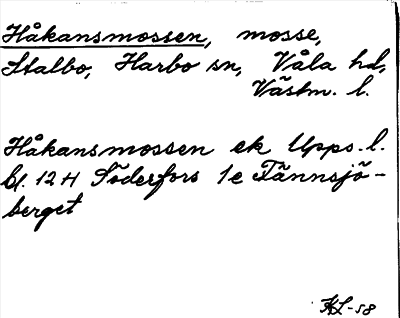 Håkansmossen, mosse,
Stalbo, Harbo sn, Våla hd,
Västm. l.
Håkansmossen ek Upps. l.
bl. 12 H Söderfors 1e Tännsjö-
berget
HL-58